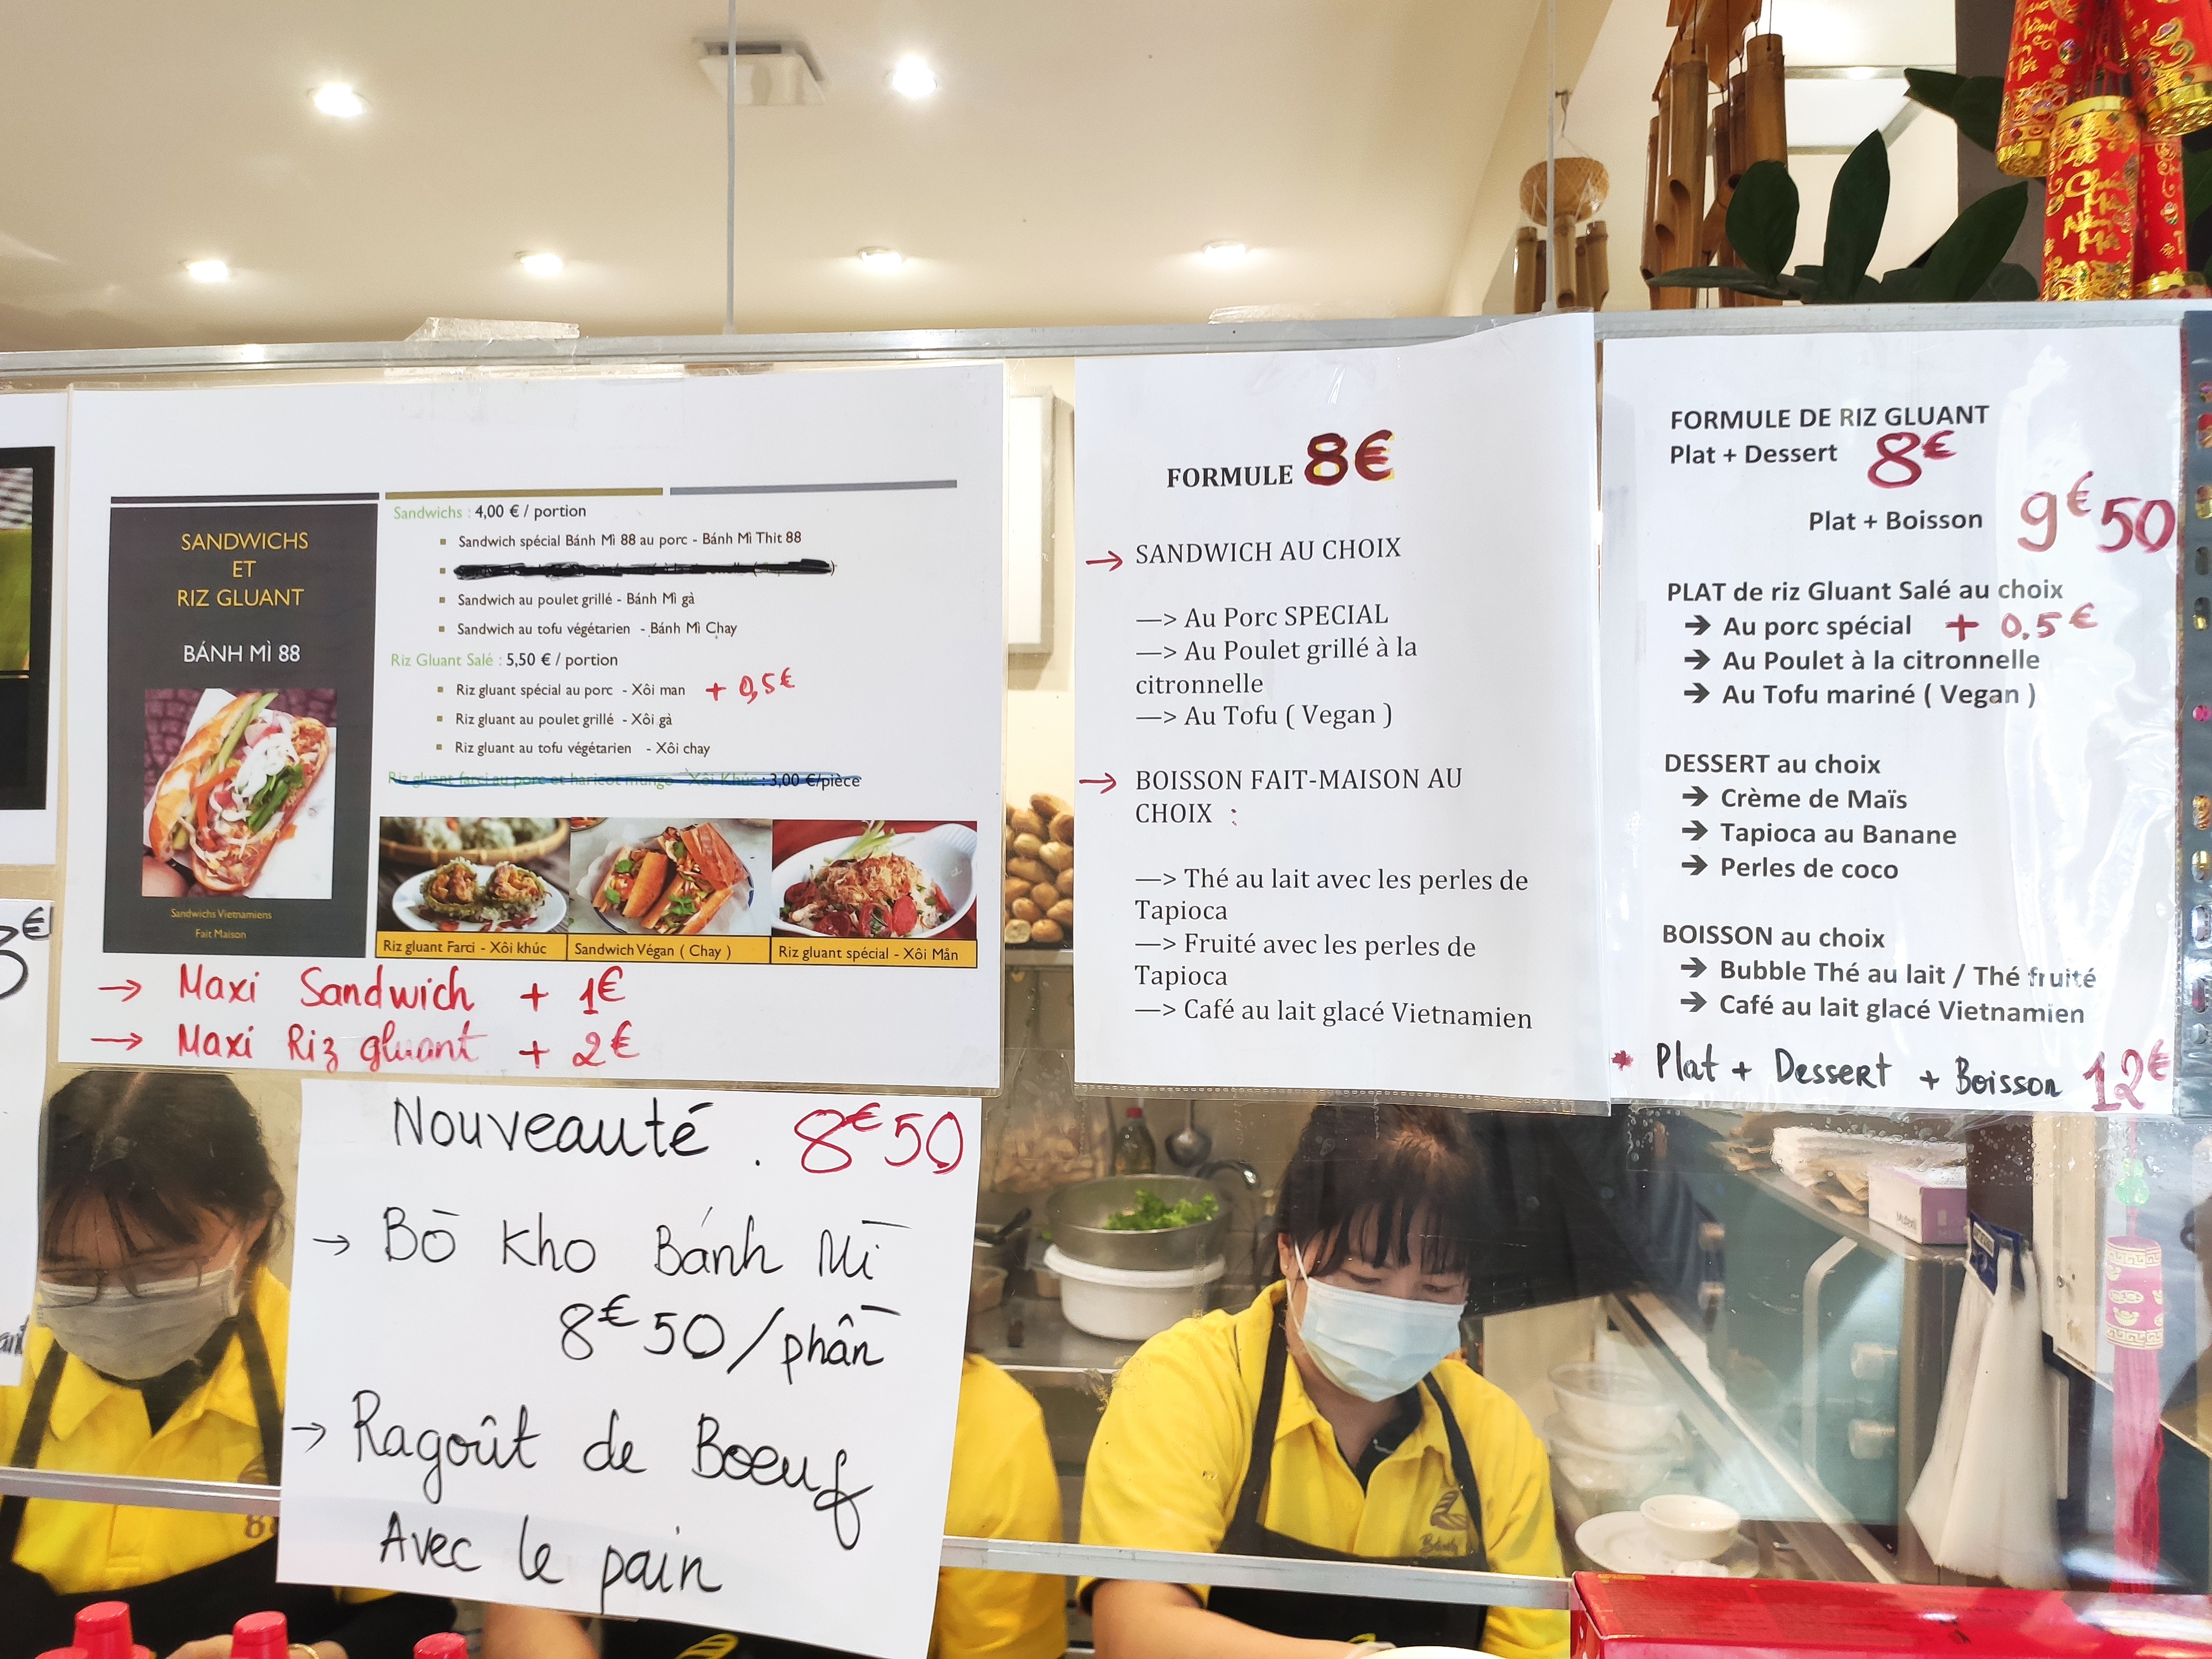 SANDWICHS
ET
RIZ GLUANT
BÁNH MÌ 88
Sandwichs Vietnamiens
Fait Maison
Sandwichs : 4,00 € / portion
Sandwich spécial Bánh Mì 88 au porc - Bánh Mì Thit 88
Sandwich au poulet grillé - Bánh Mì gà
Sandwich au tofu végétarien - Bánh Mì Chay
Riz Gluant Salé : 5,50 € / portion
Riz gluant spécial au porc - Xôi man + 0,5€
Riz gluant au poulet grillé - Xôi gà
Riz gluant au tofu végétarien - Xôi chay
Riz gluant farci au porc et haricot mungo - Xôi Khúc : 3,00 €/pièce
Riz gluant Farci - Xôi khúc
Sandwich Végan ( Chay )
Riz gluant spécial - Xôi Mặn
→ Maxi Sandwich + 1€
→ Maxi Riz gluant + 2€
Nouveauté . 8€50
→ Bò Kho Bánh Mì
8€50/phần
→ Ragoût de Boeuf
Avec le pain
FORMULE 8€
→ SANDWICH AU CHOIX
—> Au Porc SPECIAL
—> Au Poulet grillé à la
citronnelle
—> Au Tofu ( Vegan )
→ BOISSON FAIT-MAISON AU
CHOIX :
—> Thé au lait avec les perles de
Tapioca
—> Fruité avec les perles de
Tapioca
—> Café au lait glacé Vietnamien
FORMULE DE RIZ GLUANT
Plat + Dessert 8€
Plat + Boisson 9€50
PLAT de riz Gluant Salé au choix
→ Au porc spécial + 0,5€
→ Au Poulet à la citronnelle
→ Au Tofu mariné ( Vegan )
DESSERT au choix
→ Crème de Maïs
→ Tapioca au Banane
→ Perles de coco
BOISSON au choix
→ Bubble Thé au lait / Thé fruité
→ Café au lait glacé Vietnamien
* Plat + Dessert + Boisson 12€